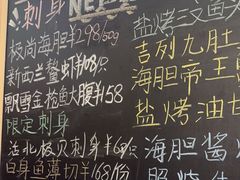 刺身 NEW
极尚海胆¥298/50g
新西兰鳌虾¥108/只
飘雪金枪鱼大腹¥158
限定刺身
活北极贝刺身¥68/只
白身鱼薄切¥168/份
盐烤三文鱼头
吉列九肚
海胆帝王
盐烤油甘
海胆酱